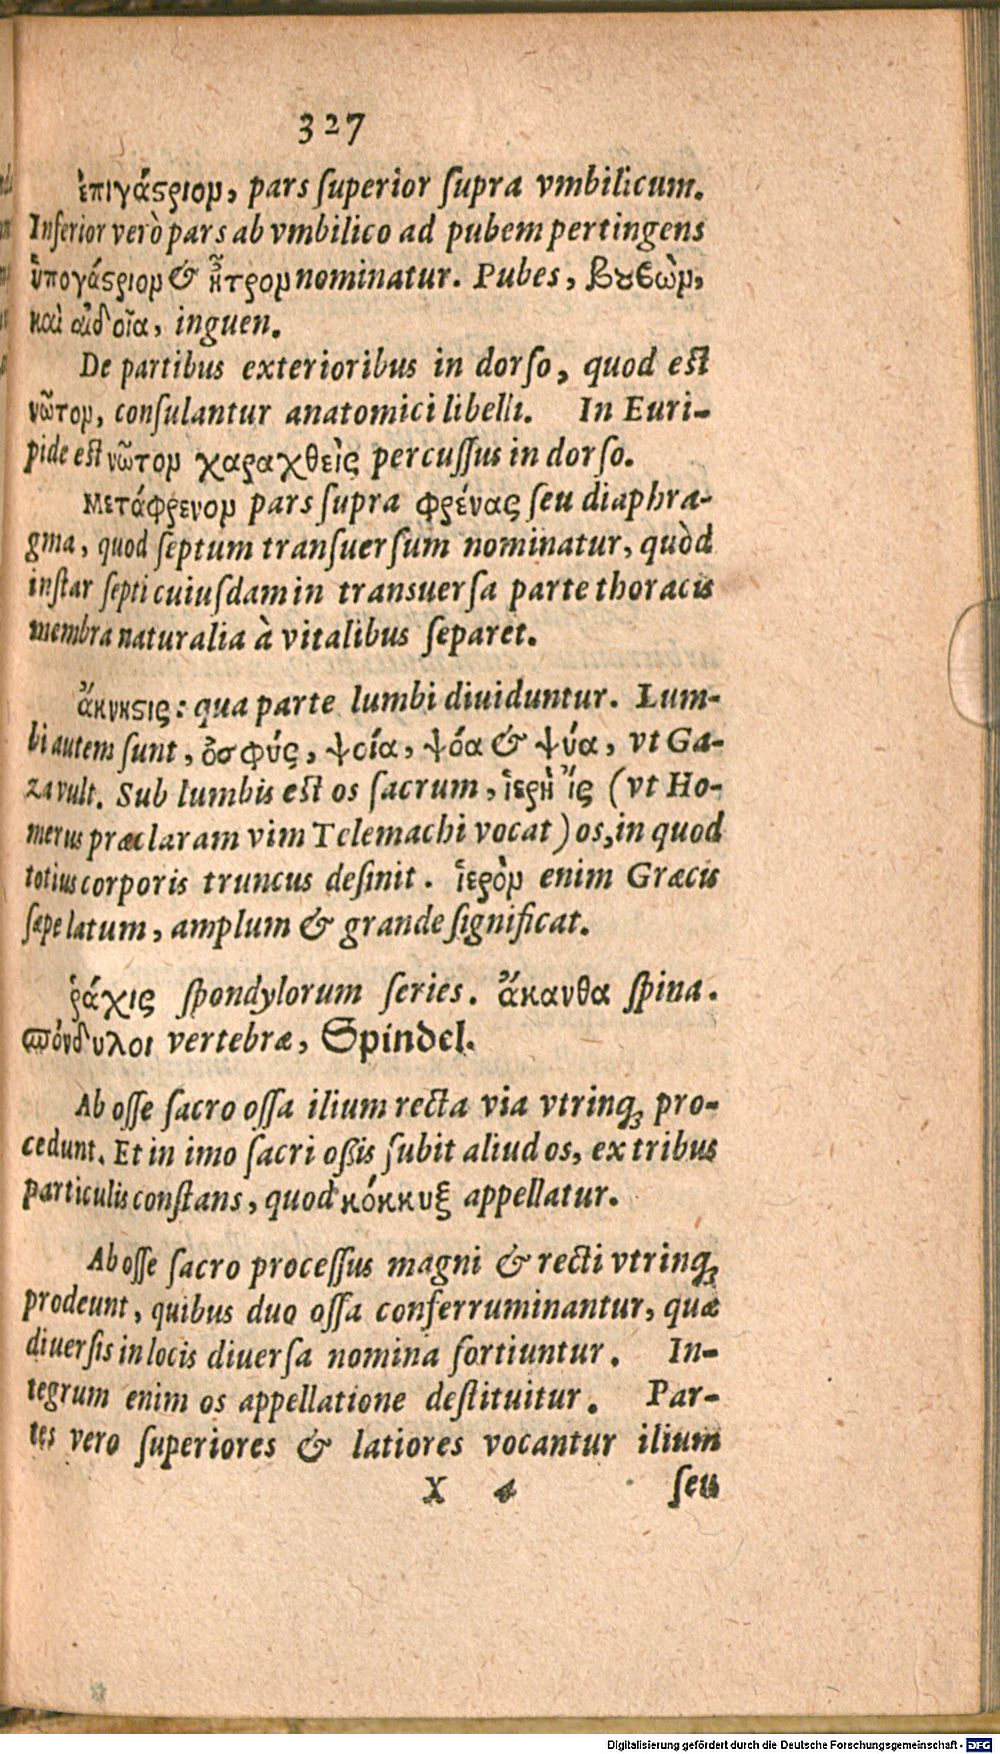 327
ἐπιγάϛριομ, pars ſuperior ſupra vmbilicum.
Inferior verò pars ab vmbilico ad pubem pertingens
ὑπογάϛριομ & ἦτρομ nominatur. Pubes, βουβὼμ,
καὶ αἰδοῖα, inguen.
De partibus exterioribus in dorſo, quod eſt
νῶτομ, conſulantur anatomici libelli. In Euri-
pide eſt νῶτομ χαραχθεὶς percuſſus in dorſo.
Μετάφρενομ pars ſupra φρένας ſeu diaphra-
gma, quod ſeptum tranſuerſum nominatur, quòd
inſtar ſepti cuiuſdam in transuerſa parte thoracis
membra naturalia à vitalibus ſeparet.
ἄκνηϛις: qua parte lumbi diuiduntur. Lum-
bi autem ſunt, ὀσφύς, ψοία, ψόα & ψύα, vt Ga-
za vult. Sub lumbis eſt os ſacrum, ἱερὴ ἲς (vt Ho-
merus præclaram vim Telemachi vocat) os, in quod
totius corporis truncus deſinit. ἱερὸμ enim Græcis
ſæpe latum, amplum & grande ſignificat.
ῥάχις ſpondylorum ſeries. ἄκανθα ſpina.
σπόνδυλοι vertebræ, Spindel.
Ab oſſe ſacro oſſa ilium recta via vtrinq; pro-
cedunt. Et in imo ſacri oßis ſubit aliud os, ex tribus
particulis conſtans, quod κόκκυξ appellatur.
Ab oſſe ſacro proceſſus magni & recti vtrinq;
prodeunt, quibus duo oſſa conferruminantur, quæ
diuerſis in locis diuerſa nomina ſortiuntur. In-
tegrum enim os appellatione deſtituitur. Par-
tes vero ſuperiores & latiores vocantur ilium
X 4 ſeu
Digitalisierung gefördert durch die Deutsche Forschungsgemeinschaft - DFG